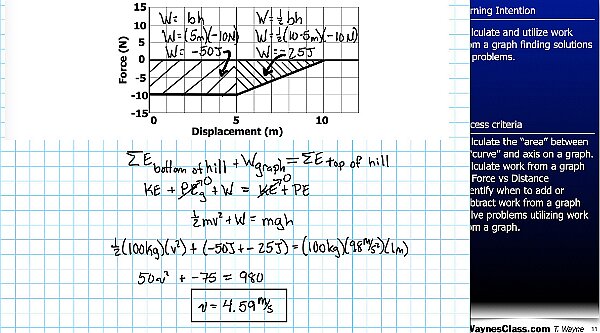 15
10
5
0
-5
-10
-15
Force (N)
0 5 10
Displacement (m)
W= bh
W=(5m)(-10N)
W= -50J
W=½bh
W=½(10-5m)(-10N)
W= -25J
ΣE bottom of hill + W graph = ΣE top of hill
KE + PEg→0 + W = KE→0 + PE
½mv² + W = mgh
½(100kg)(v²) + (-50J + -25J) = (100kg)(9.8 m/s²)(1m)
50v² + -75 = 980
v = 4.59 m/s
rning Intention
lculate and utilize work
om a graph finding solutions
problems.
cess criteria
lculate the "area" between
"curve" and axis on a graph.
lculate work from a graph
Force vs Distance
entify when to add or
btract work from a graph
lve problems utilizing work
om a graph.
WaynesClass.com T. Wayne 11